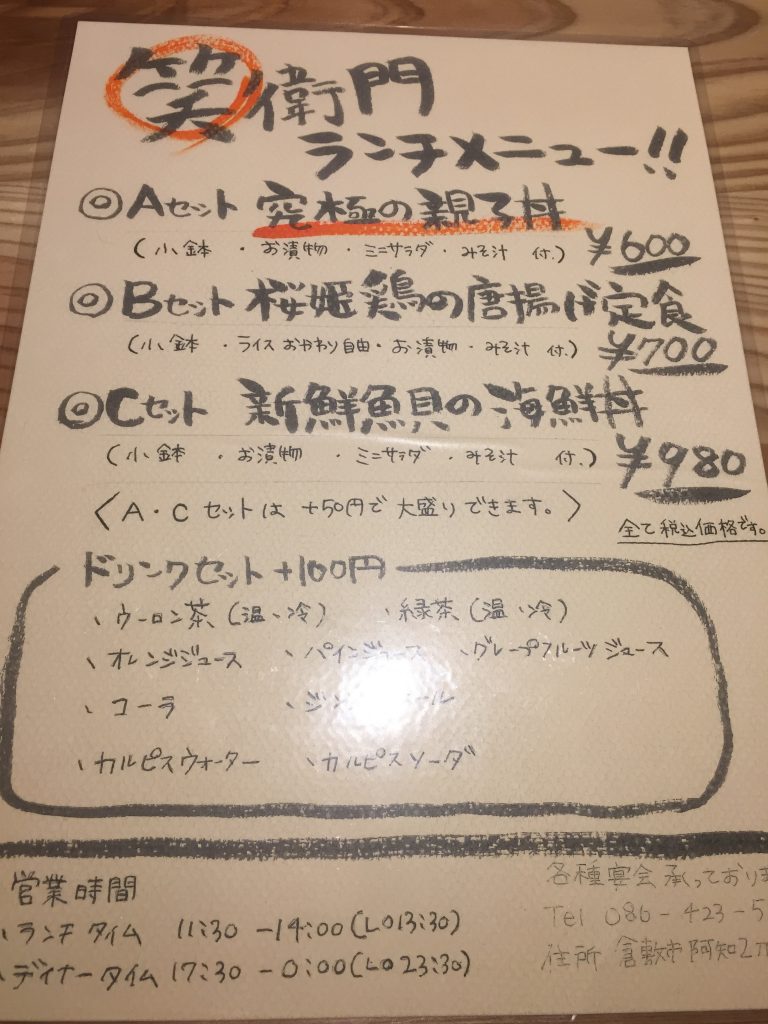 笑衛門
ランチメニュー!!
◎Aセット 究極の親子丼
(小鉢・お漬物・ミニサラダ・みそ汁 付.) ¥600
◎Bセット 桜姫鶏の唐揚げ定食
(小鉢・ライスおかわり自由・お漬物・みそ汁 付.) ¥700
◎Cセット 新鮮魚貝の海鮮丼
(小鉢・お漬物・ミニサラダ・みそ汁 付.) ¥980
〈A・Cセットは +50円で 大盛りできます。〉
全て税込価格です。
ドリンクセット +100円
、ウーロン茶(温、冷) 、緑茶(温、冷)
、オレンジジュース 、パインジュース 、グレープフルーツジュース
、コーラ 、ジン ール
、カルピスウォーター 、カルピスソーダ
営業時間
、ランチタイム 11:30 -14:00(LO13:30)
、ディナータイム 17:30 -0:00(LO23:30)
各種宴会承っておりま
Tel 086-423-5
住所 倉敷市阿知2